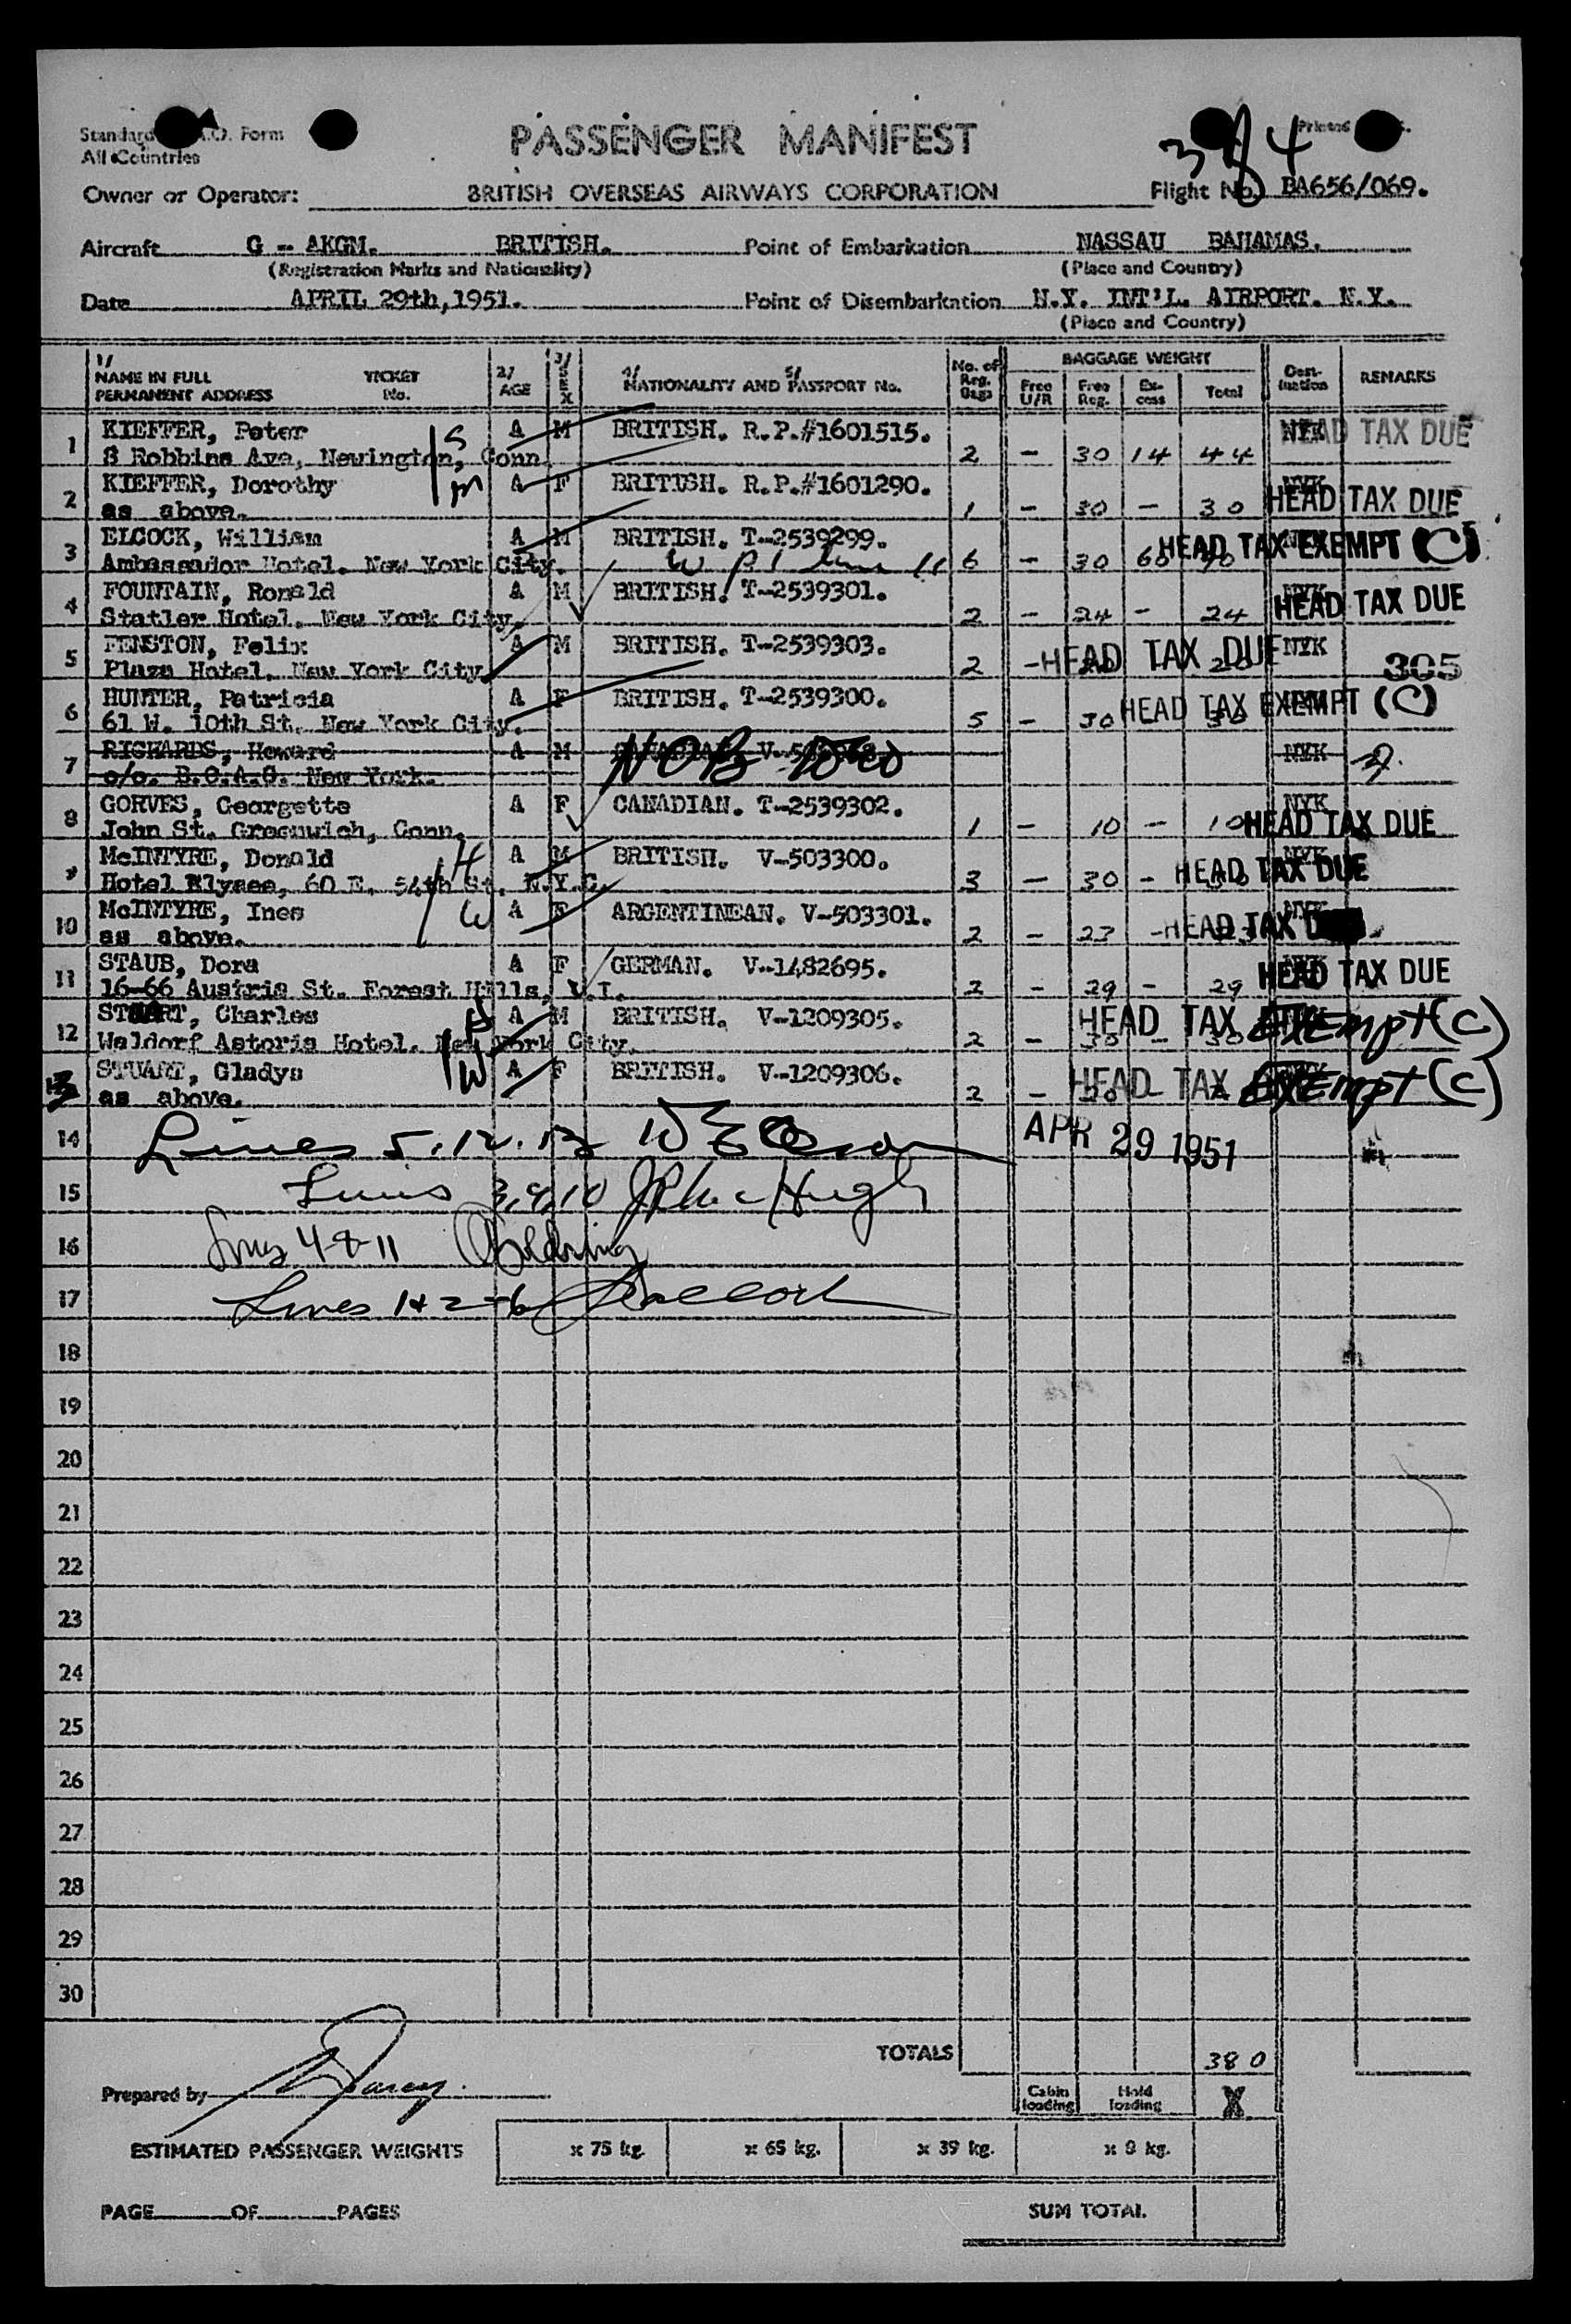 Standard I.C.A.O. Form
All Countries
PASSENGER MANIFEST
Printed
384
Owner or Operator: BRITISH OVERSEAS AIRWAYS CORPORATION Flight No. BA656/069.
Aircraft G -- AKGM. BRITISH. Point of Embarkation NASSAU BAHAMAS.
(Registration Marks and Nationality) (Place and Country)
Date APRIL 29th, 1951. Point of Disembarkation N.Y. INT'L. AIRPORT. N.Y.
(Place and Country)
1/ NAME IN FULL PERMANENT ADDRESS TICKET No. 2/ AGE 3/ SEX 4/ 5/ NATIONALITY AND PASSPORT No. No. of Reg. Bags BAGGAGE WEIGHT Free U/R Free Reg. Ex-cess Total Dest-ination REMARKS
1 KIEFFER, Peter S A M BRITISH. R.P.#1601515. NYK HEAD TAX DUE
8 Robbins Ave, Newington, Conn. 2 - 30 14 44
2 KIEFFER, Dorothy m A F BRITISH. R.P.#1601290. NYK
as above. 1 - 30 - 30 HEAD TAX DUE
3 ELCOCK, William A M BRITISH. T-2539299. NYK HEAD TAX EXEMPT (C)
Ambassador Hotel. New York City. 6 - 30 60 90
4 FOUNTAIN, Ronald A M BRITISH. T-2539301. NYK HEAD TAX DUE
Statler Hotel. New York City. 2 - 24 - 24
5 FENSTON, Felix A M BRITISH. T-2539303. HEAD TAX DUE NYK
Plaza Hotel. New York City. 2 - 305
6 HUNTER, Patricia A F BRITISH. T-2539300. HEAD TAX EXEMPT (C)
61 W. 10th St. New York City. 5 - 30
7 RICHARDS, Howard A M NOB NYK
c/o. B.O.A.C. New York.
8 GORVES, Georgette A F CANADIAN. T-2539302. NYK
John St. Greenwich, Conn. 1 - 10 - 10 HEAD TAX DUE
9 McINTYRE, Donald H A M BRITISH. V-503300. NYK HEAD TAX DUE
Hotel Elysee, 60 E. 54th St. N.Y.C. 3 - 30 -
10 McINTYRE, Ines W A F ARGENTINEAN. V-503301. NYK HEAD TAX
as above. 2 - 23 - 23
11 STAUB, Dora A F GERMAN. V-1482695. HEAD TAX DUE
16-66 Austria St. Forest Hills, L.I. 2 - 29 - 29
12 STUART, Charles H A M BRITISH. V-1209305. HEAD TAX Exempt (C)
Waldorf Astoria Hotel. New York City. 2 - 30 - 30
13 STUART, Gladys W A F BRITISH. V-1209306. HEAD TAX Exempt (C)
as above. 2 -
14 Lines 5. 12. 13 APR 29 1951
15 Lines 3, 9, 10 JP McHugh
16 Lines 4 & 11
17 Lines 1 & 2 - 6
18
19
20
21
22
23
24
25
26
27
28
29
30
TOTALS 380
Prepared by
Cabin loading Hold loading X
ESTIMATED PASSENGER WEIGHTS x 75 kg. x 65 kg. x 39 kg. x 8 kg.
PAGE OF PAGES SUM TOTAL